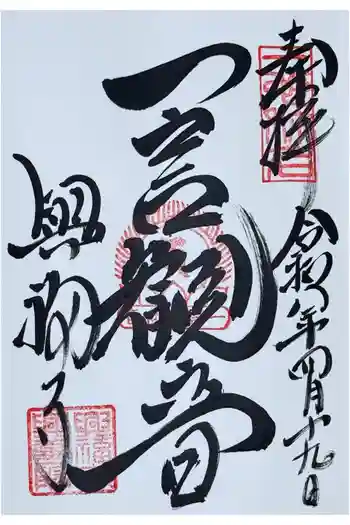 奉拝
令和年四月十九日
一言観音
興福寺